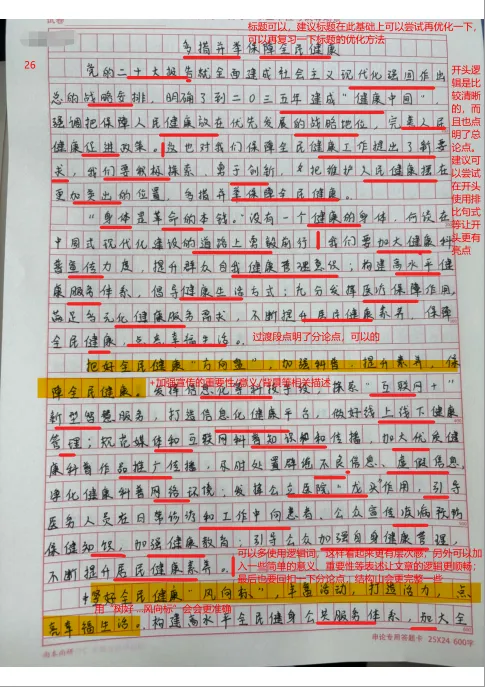 标题可以，建议标题在此基础上可以尝试再优化一下，
可以再复习一下标题的优化方法
26
多措并举保障全民健康
党的二十大报告就全面建成社会主义现代化强国作出
总的战略安排，明确了到二〇三五年建成“健康中国”，
强调把保障人民健康放在优先发展的战略地位，完善人民
健康促进政策。这也对我们保障全民健康工作提出了新要
求，我们要积极探索，勇于创新，把维护人民健康摆在
更加突出的位置，多措并举保障全民健康。
开头逻辑是比较清晰的，而且也点明了总论点。建议可以尝试在开头使用排比句式等让开头更有亮点
“身体是革命的本钱。”没有一个健康的身体，何谈在
中国式现代化建设的道路上勇毅前行？我们要加大健康科
普宣传力度，提升群众自我健康管理意识；构建高水平健
康服务体系，倡导健康生活方式；充分发挥医疗保障作用，
满足多元化健康服务需求，不断提升居民健康素养，保障
全民健康，点亮幸福生活。
过渡段点明了分论点，可以的
把好全民健康“方向盘”，加强科普，提升素养，保
障全民健康。
+加强宣传的重要性/意义/背景等相关描述
发挥信息化等科技手段，探索“互联网+”
新型智慧服务，打造信息化健康平台，做好线上线下健康
管理；规范媒体和互联网科普知识和传播，加大优质健
康科普作品推广传播，及时处置辟谣不良信息、虚假信息，
净化健康科普网络环境；发挥公立医院“龙头”作用，引导
医务人员在日常诊访和工作中向患者、公众宣传疾病预防
保健知识，加强健康教育；引导公众加强自身健康管理，
不断提升居民健康素养。
可以多使用逻辑词，这样看起来更有层次感；另外可以加
入一些简单的意义、重要性等表述让文章的逻辑更顺畅；
最后也要回扣一下分论点，结构上会更完整一些
全民健康“风向标”，丰富活动，打造活力，点
用“树好…风向标”会会更准确
亮幸福生活。构建高水平全民健身公共服务体系，加大全
申论专用答题卡 25X24 600字